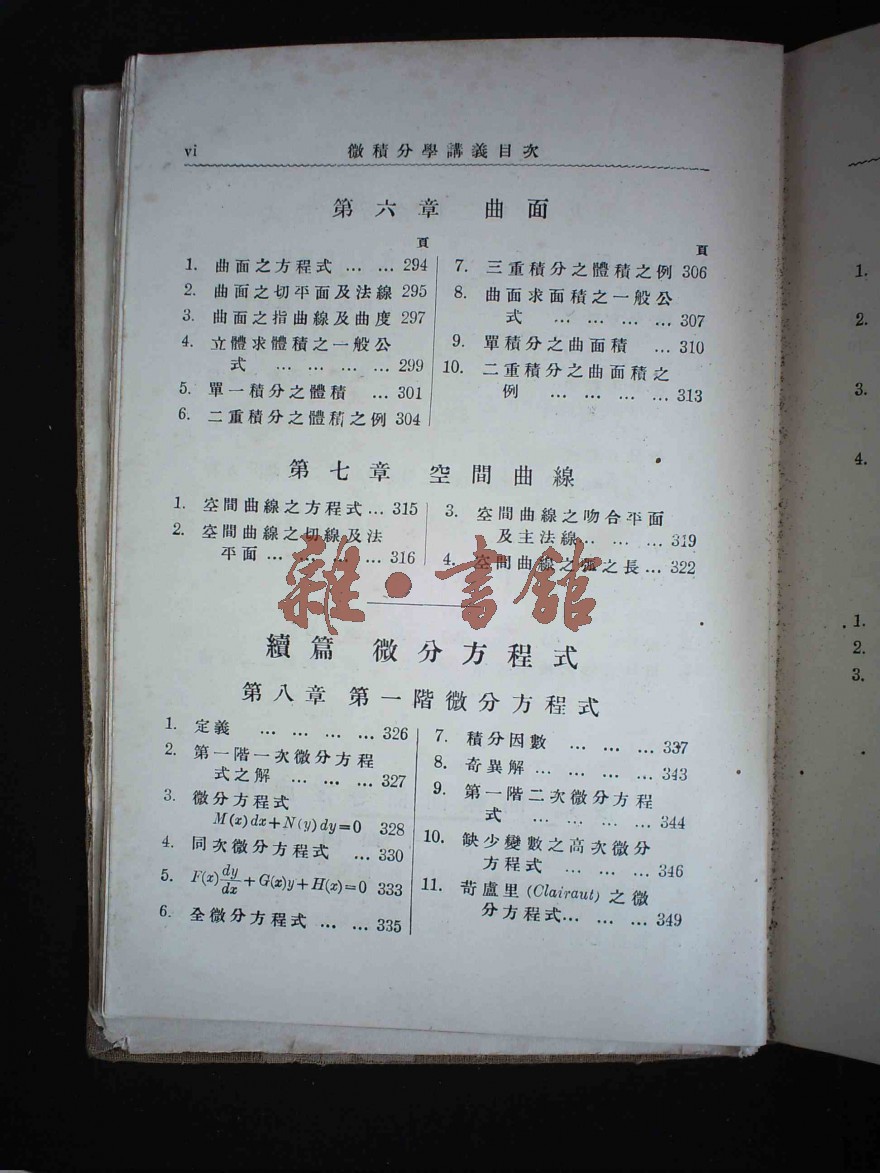 vi 微積分學講義目次
第六章 曲面
頁
1. 曲面之方程式 … … 294
2. 曲面之切平面及法線 295
3. 曲面之指曲線及曲度 297
4. 立體求體積之一般公
式 … … … … 299
5. 單一積分之體積 … 301
6. 二重積分之體積之例 304
頁
7. 三重積分之體積之例 306
8. 曲面求面積之一般公
式 … … … … 307
9. 單積分之曲面積 … 310
10. 二重積分之曲面積之
例 … … … … 313
第七章 空間曲線
1. 空間曲線之方程式 … 315
2. 空間曲線之切線及法
平面 … … … … 316
3. 空間曲線之吻合平面
及主法線 … … … 319
4. 空間曲線之弧之長 … 322
雜·書館
續篇 微分方程式
第八章 第一階微分方程式
1. 定義 … … … … 326
2. 第一階一次微分方程
式之解 … … … 327
3. 微分方程式
M(x)dx+N(y)dy=0 328
4. 同次微分方程式 … 330
5. F(x)dy/dx+G(x)y+H(x)=0 333
6. 全微分方程式 … … 335
7. 積分因數 … … … 337
8. 奇異解 … … … … 343
9. 第一階二次微分方程
式 … … … … 344
10. 缺少變數之高次微分
方程式 … … … 346
11. 苛盧里 (Clairaut) 之微
分方程式 … … … 349
1.
2.
3.
4.
1.
2.
3.